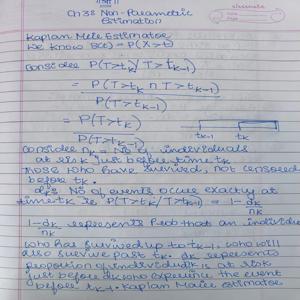 ॥श्री॥
Ch 3: Non-Parametric
Estimation
classmate
Date
Page
Kaplan Meier Estimator
We know S(t) = P(X>t)
Consider P(T>tk / T>tk-1)
= P(T>tk ∩ T>tk-1)
P(T>tk-1)
= P(T>tk)
P(T>tk-1)
tk-1 tk
Consider nk = No of individuals
at risk just before time tk
those who have survived, not censored
before tk.
dk = No of events occur exactly at
time tk ie P(T>tk/T>tk-1) = 1 - dk
nk
1-dk represents Prob that an individu
nk
who has survived up to tk-1, who will
also survive past tk. dk represents
proportion of individuals at risk
just before who experience the event
before tk-1. Kaplan Maier estimator